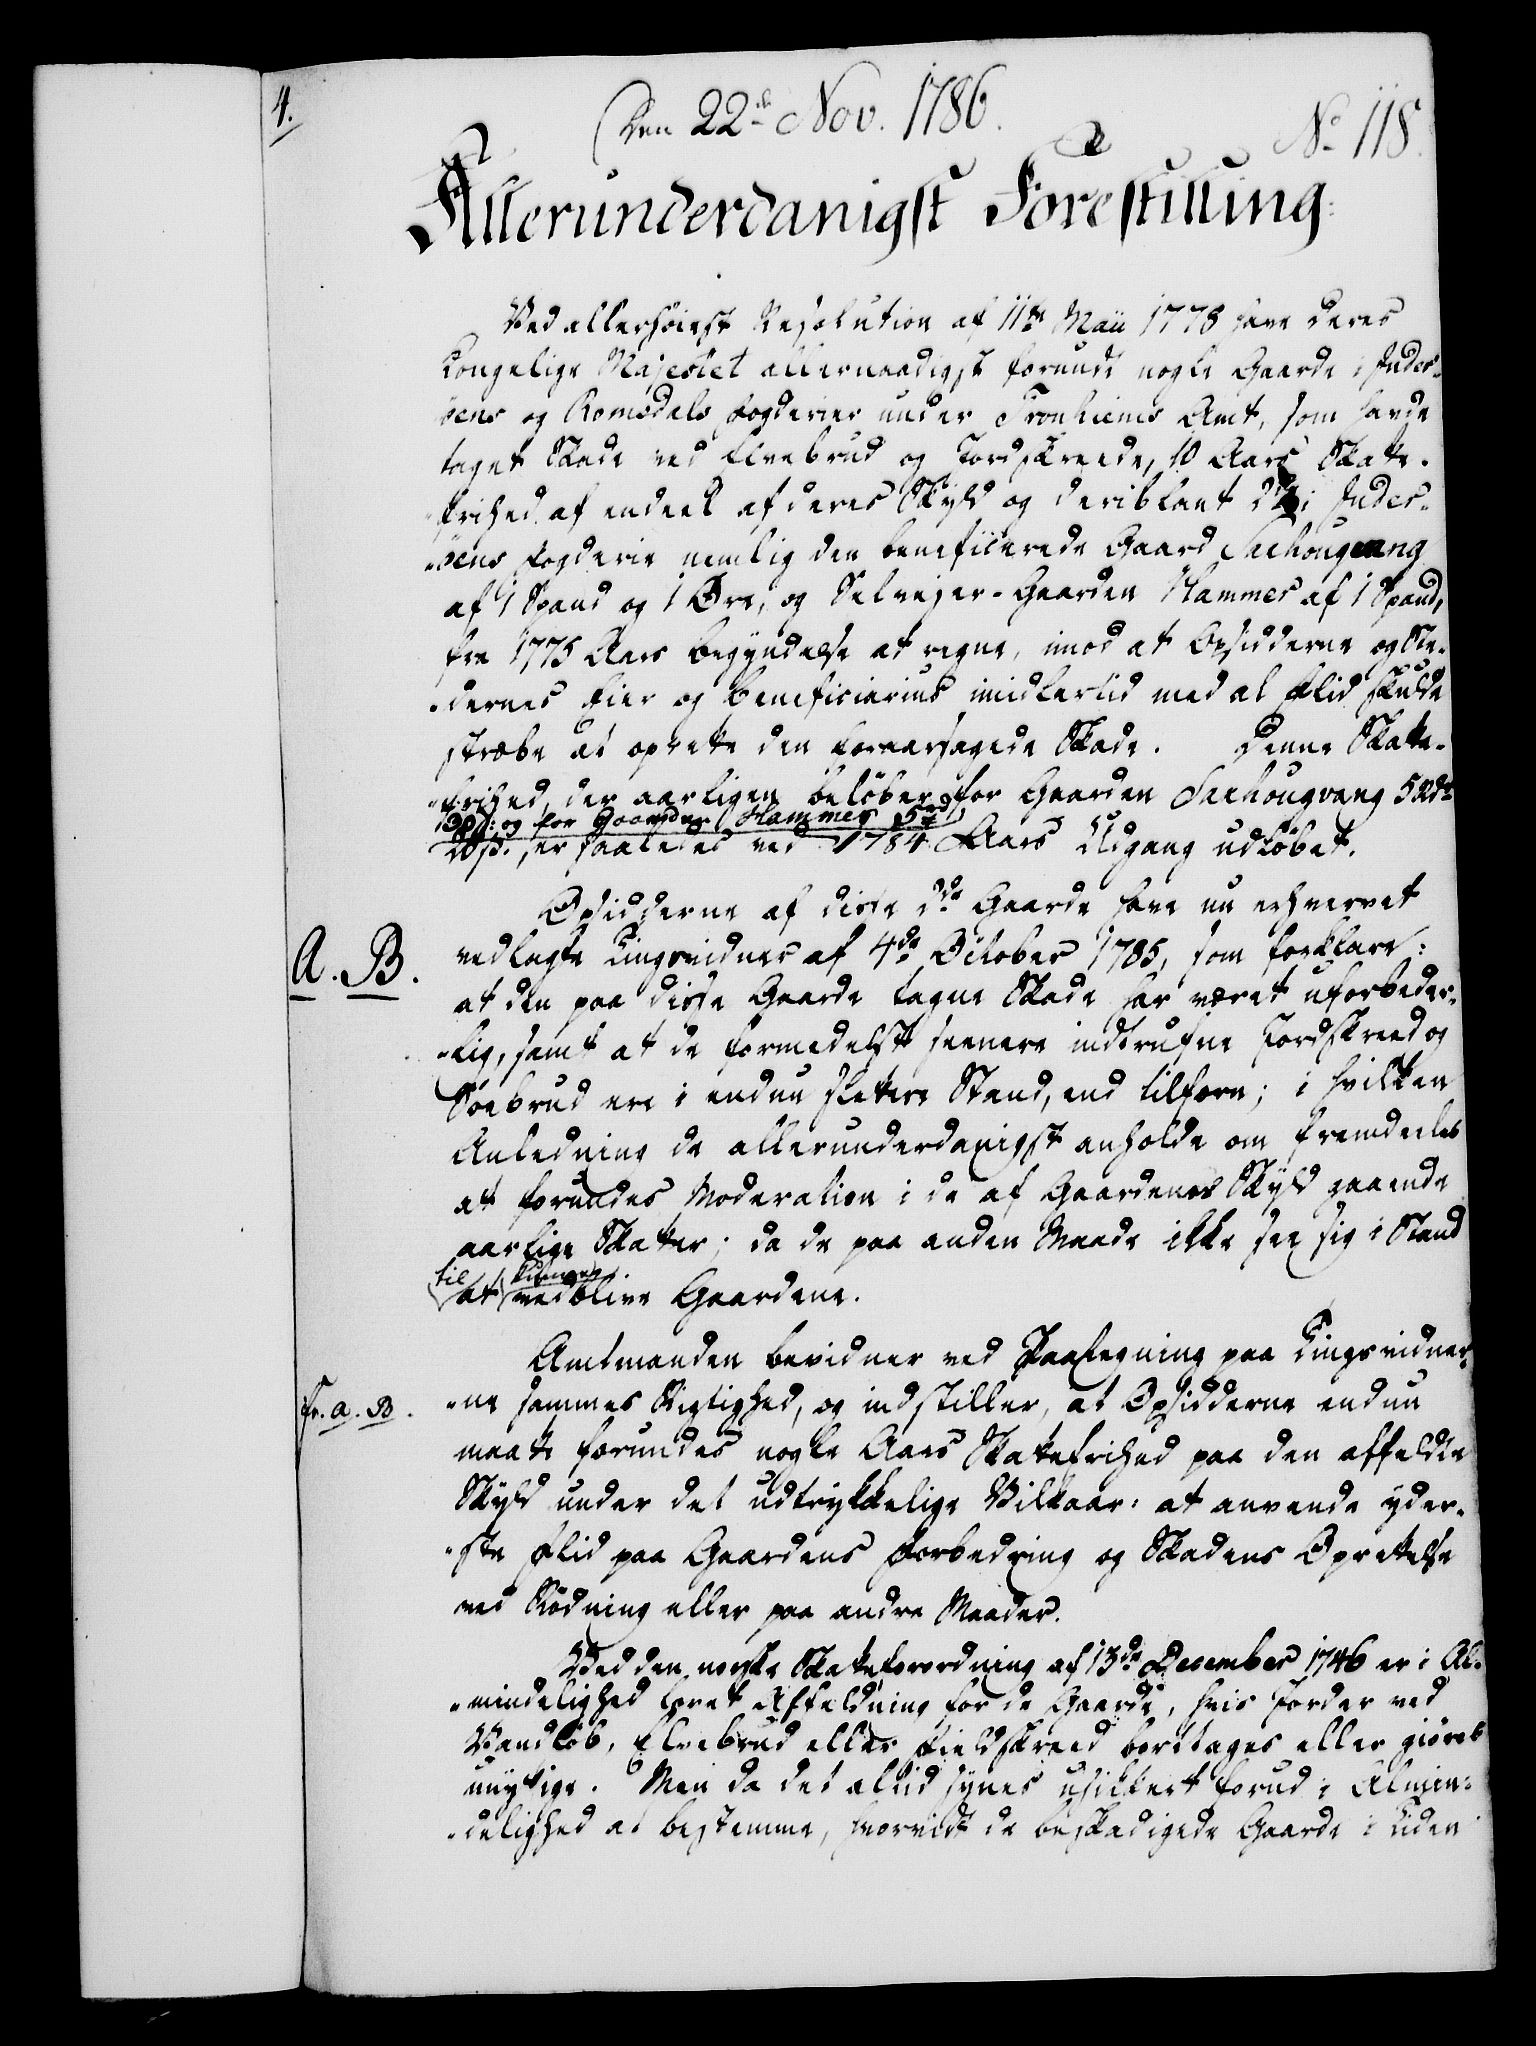 4.
Den 22de Nov. 1786.
No 118.
Allerunderdanigst Forestilling:
Ved allerhöiest Resolution af 11te Maii 1778 have Deres
Kongelige Majestet allernaadigst forundt nogle Gaarde i Inder-
öens og Romsdals Fogderier under Tronhiems Amt, som havde
taget Skade ved Elvebrud og Jordskreede, 10 Aars Skatte-
frihed af endeel af deres Skyld og deriblant 2de i Inder-
öens Fogderie nemlig den beneficerede Gaard Sachougvang
af 1 Spand og 1 Øre, og Selvejer-Gaarden Hammer af 1 Spand,
fra 1775 Aars Begyndelse at regne, imod at Opsidderne og Ste-
dernes Eier og Beneficiarius imidlertid med al Flid skulde
stræbe at oprette den foraarsagede Skade. Denne Skatte-
frihed, der aarligen belöber for Gaarden Sachougvang 5 Rdr
og for Gaarden Hammer 5
20 s., er saaledes ved 1784 Aars Udgang udlöbet.
Opsidderne af disse 2de Gaarde have nu erhvervet
A. B.
vedlagte Tingsvidner af 4de October 1785, som forklare:
at den paa disse Gaarde tagne Skade har været uforbeder-
lig, samt at de formedelst seenere indtrufne Jordskreed og
Söebrud ere i endnu slettere Stand, end tilforn; i hvilken
Anledning de allerunderdanigst anholde om fremdeeles
at forundes Moderation i de af Gaardenes Skyld gaaende
aarlige Skatter; da de paa anden Maade ikke see sig i Stand
til kunne
at vedblive Gaardene.
Amtmanden bevidner ved Paategning paa Tingsvidner-
fr. a. B.
ne sammes Rigtighed, og indstiller, at Opsidderne endnu
maatte forundes nogle Aars Skattefrihed paa den affeldte
Skyld under det udtrykkelige Vilkaar: at anvende yder-
ste Flid paa Gaardens Forbedring og Skadens Oprettelse
ved Rödning eller paa andre Maader.
Ved den norske Skatteforordning af 13de December 1746 er i Al-
mindelighed lovet Affeldning for de Gaarde, hvis Jorder ved
Vandlöb, Elvebrud eller Fieldskreed borttages eller giöres
unyttige. Men da det altid synes usikkert forud i Almin-
delighed at bestemme, hvorvidt de beskadigede Gaarde i Tiden